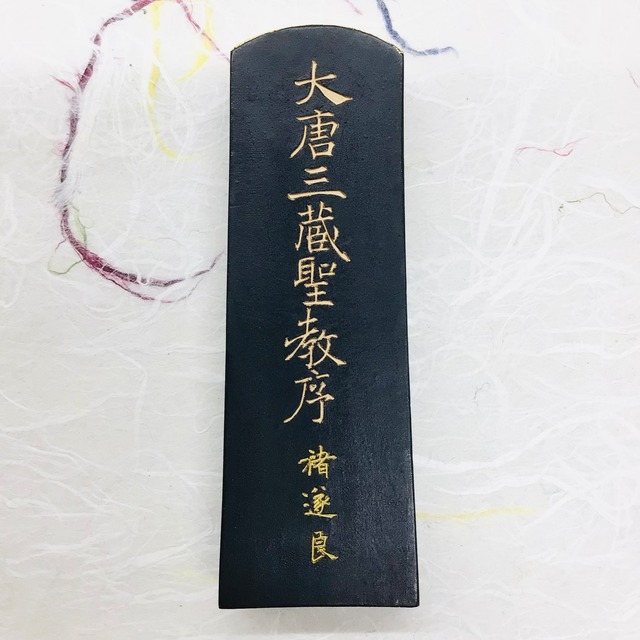 大唐三蔵聖教序
褚遂良